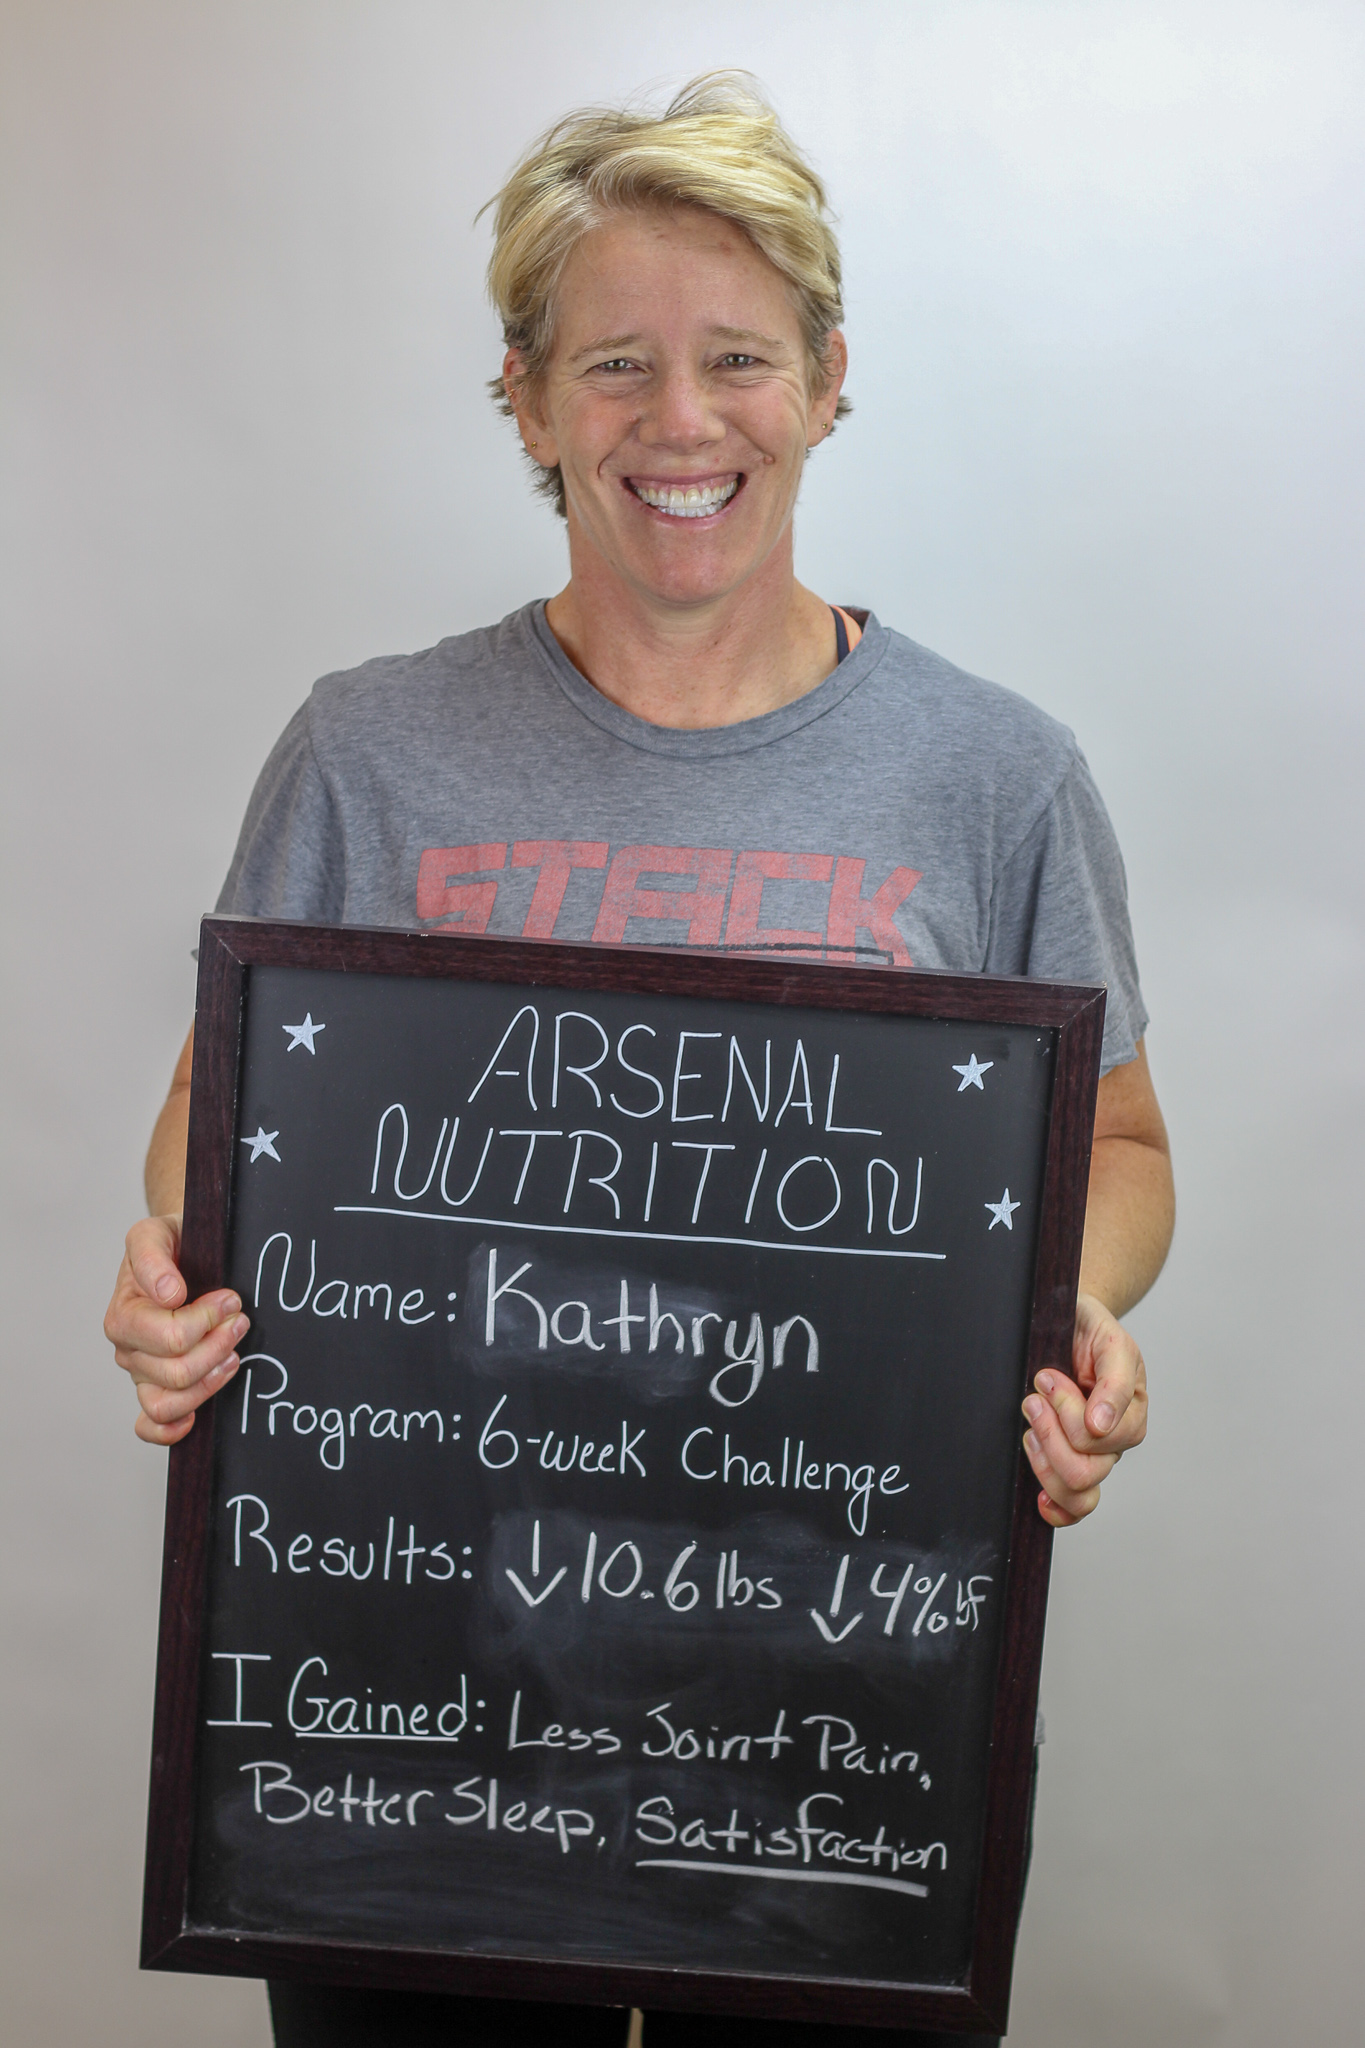 STACK
ARSENAL
NUTRITION
Name: Kathryn
Program: 6-week Challenge
Results: ↓10.6 lbs ↓4% bf
I Gained: Less Joint Pain,
Better Sleep, Satisfaction